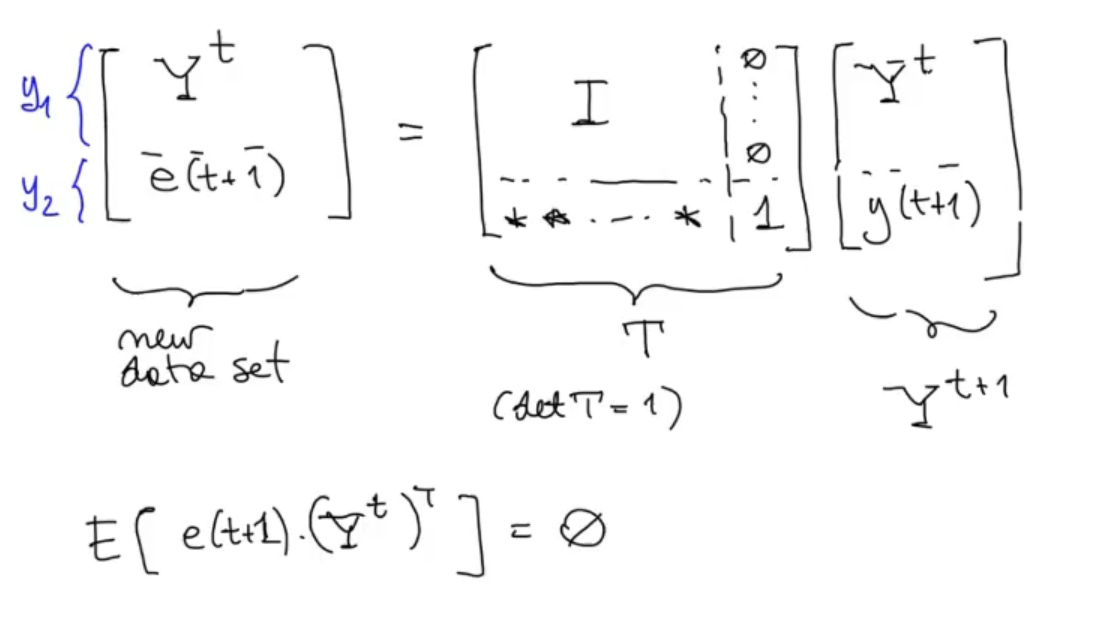 y₁ { [ Y^t
e(t+1) ] = [ I ∅ ⋮ ∅
y₂ { * * ... * 1 ] [ Y^t
y(t+1) ]
new
data set
T
(det T = 1)
Y^{t+1}
E[ e(t+1)·(Y^t)^T ] = ∅